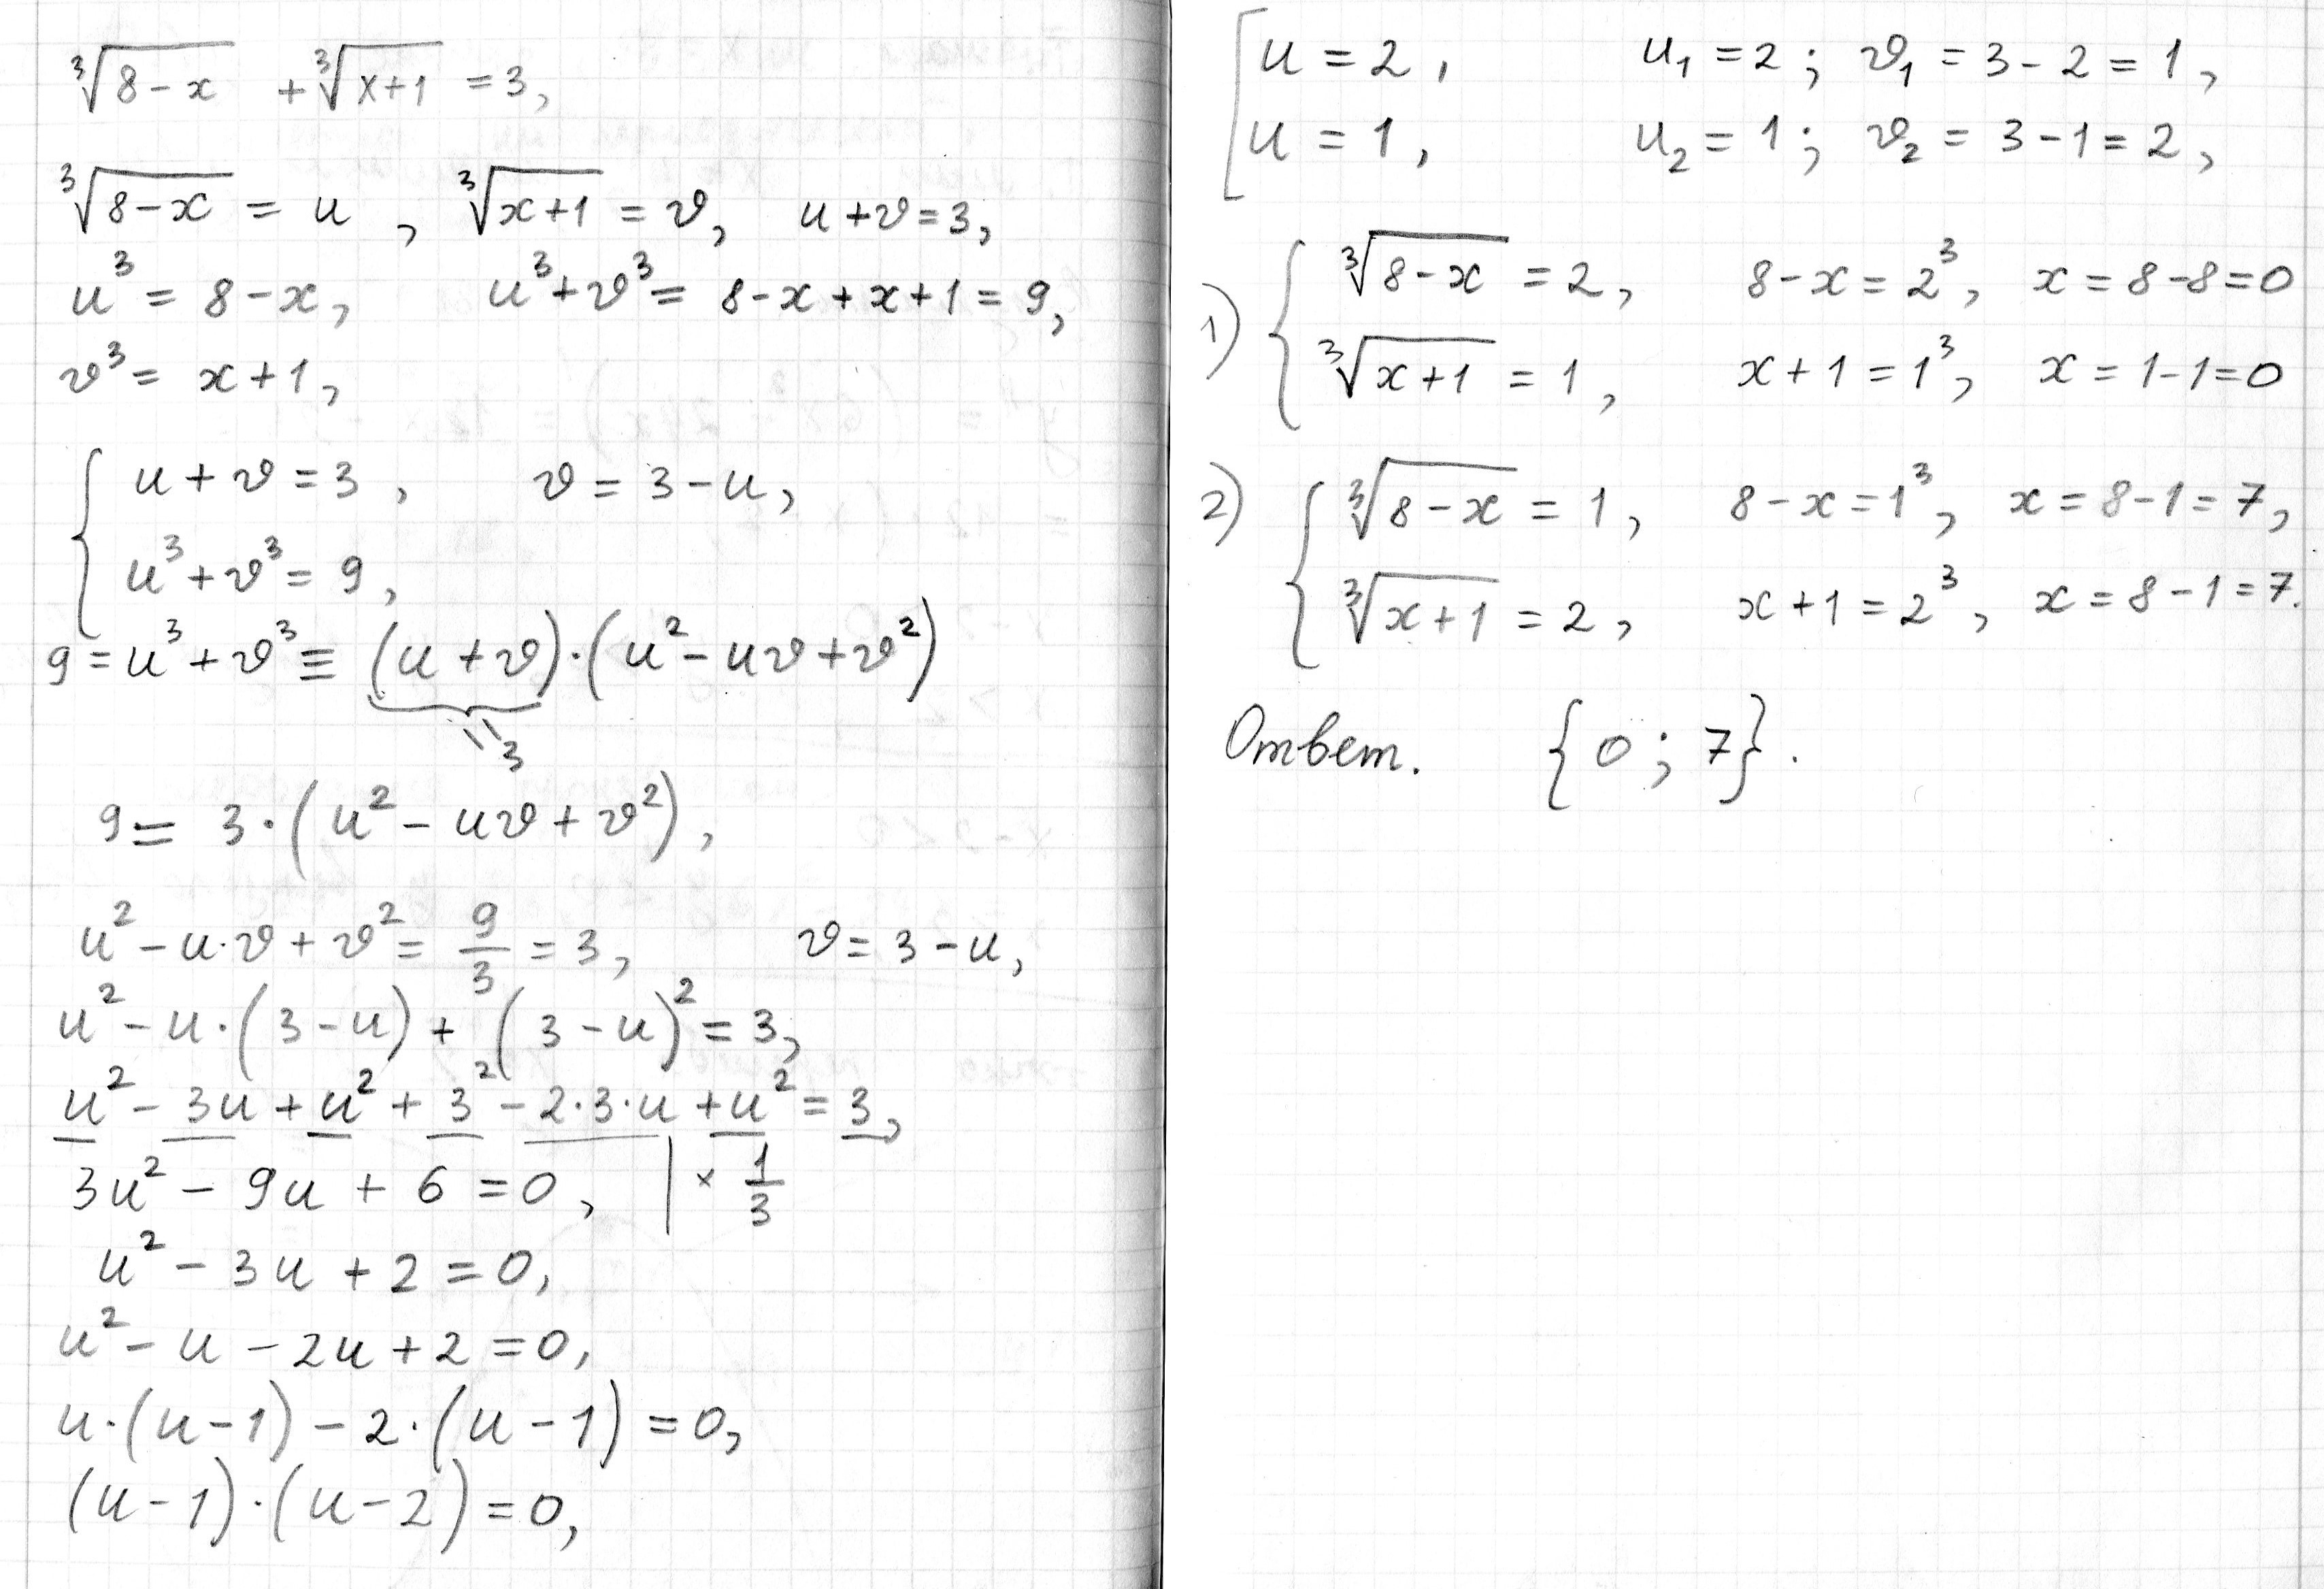 ∛(8-x) + ∛(x+1) = 3,
∛(8-x) = u, ∛(x+1) = v, u+v=3,
u³ = 8-x, u³+v³ = 8-x+x+1 = 9,
v³ = x+1,
{ u+v=3, v = 3-u,
u³+v³ = 9,
9 = u³+v³ ≡ (u+v)·(u²-uv+v²)
3
9 = 3·(u²-uv+v²),
u²-u·v+v² = 9/3 = 3, v = 3-u,
u²-u·(3-u)+(3-u)² = 3,
u²-3u+u²+3²-2·3·u+u² = 3,
3u²-9u+6=0, | × 1/3
u²-3u+2=0,
u²-u-2u+2=0,
u·(u-1)-2·(u-1)=0,
(u-1)·(u-2)=0,
[ u = 2, u₁ = 2; v₁ = 3-2 = 1,
u = 1, u₂ = 1; v₂ = 3-1 = 2,
1) { ∛(8-x) = 2, 8-x = 2³, x = 8-8=0
∛(x+1) = 1, x+1 = 1³, x = 1-1=0
2) { ∛(8-x) = 1, 8-x = 1³, x = 8-1 = 7,
∛(x+1) = 2, x+1 = 2³, x = 8-1 = 7.
Ответ. {0; 7}.